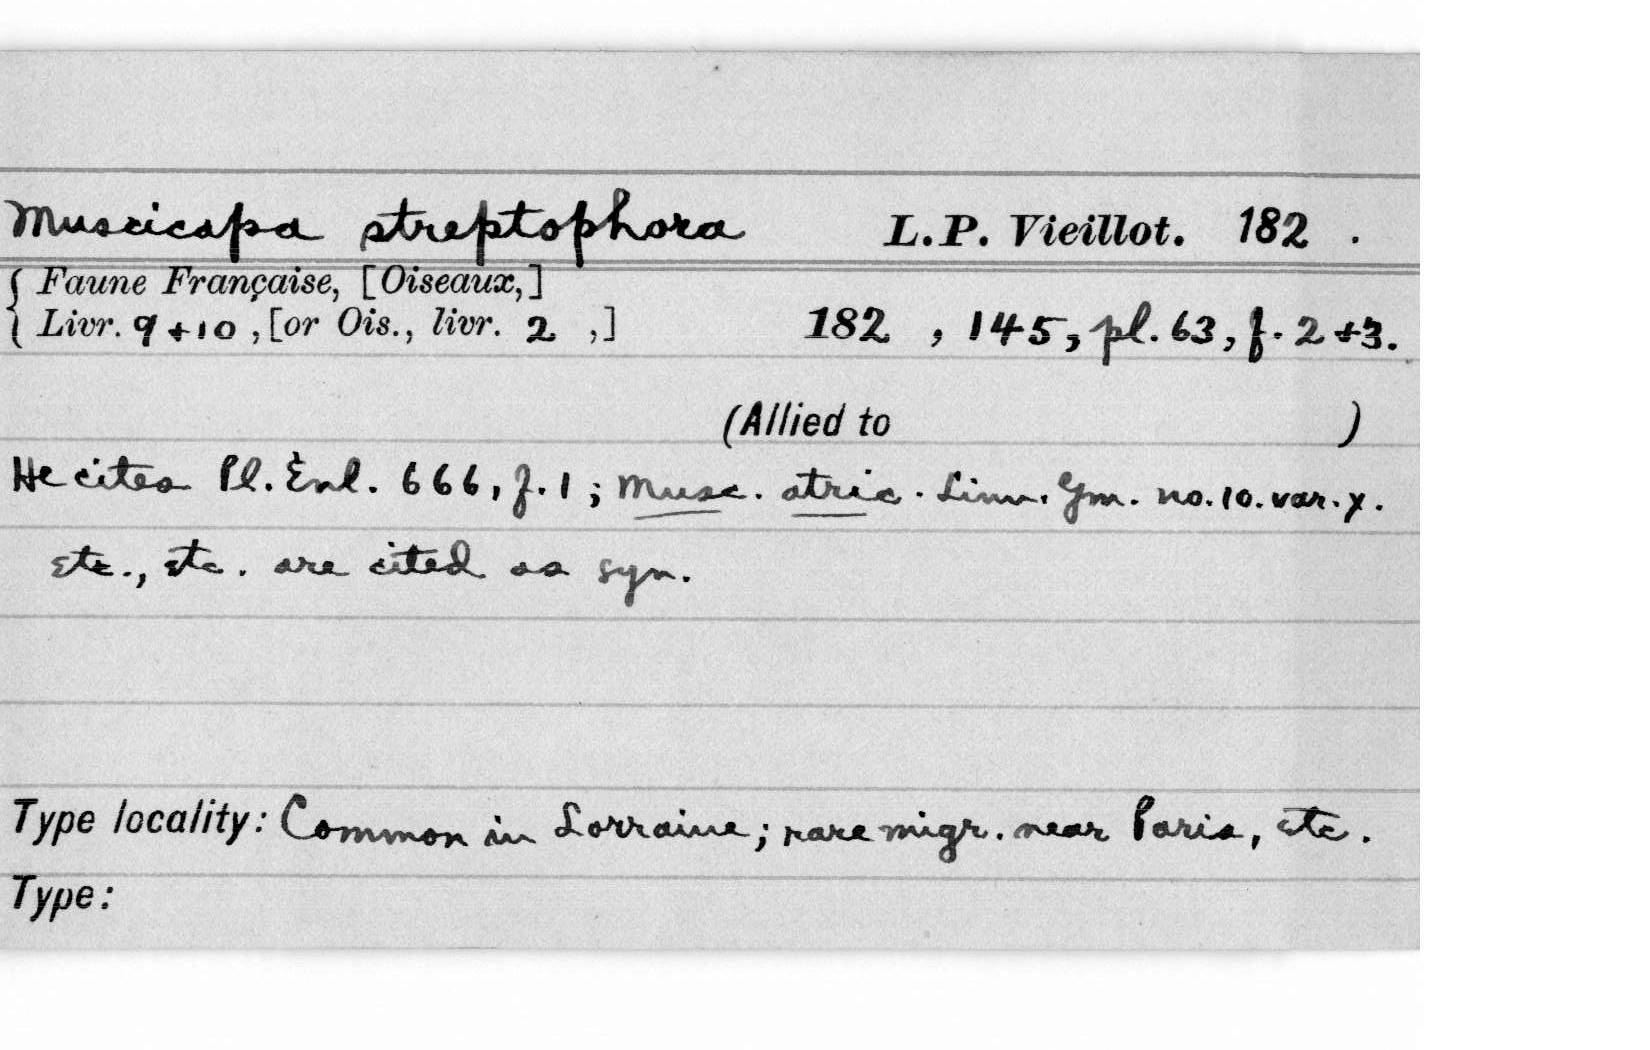 Muscicapa streptophora L.P. Vieillot. 182 .
{ Faune Française, [Oiseaux,]
{ Livr. 9+10 ,[or Ois., livr. 2 ,] 182 , 145, pl. 63, f. 2+3.
(Allied to )
He cites Pl. Enl. 666, f. 1 ; Musc. atric. Linn. Gm. no. 10. var. γ.
etc., etc. are cited as syn.
Type locality: Common in Lorraine; rare migr. near Paris, etc.
Type: